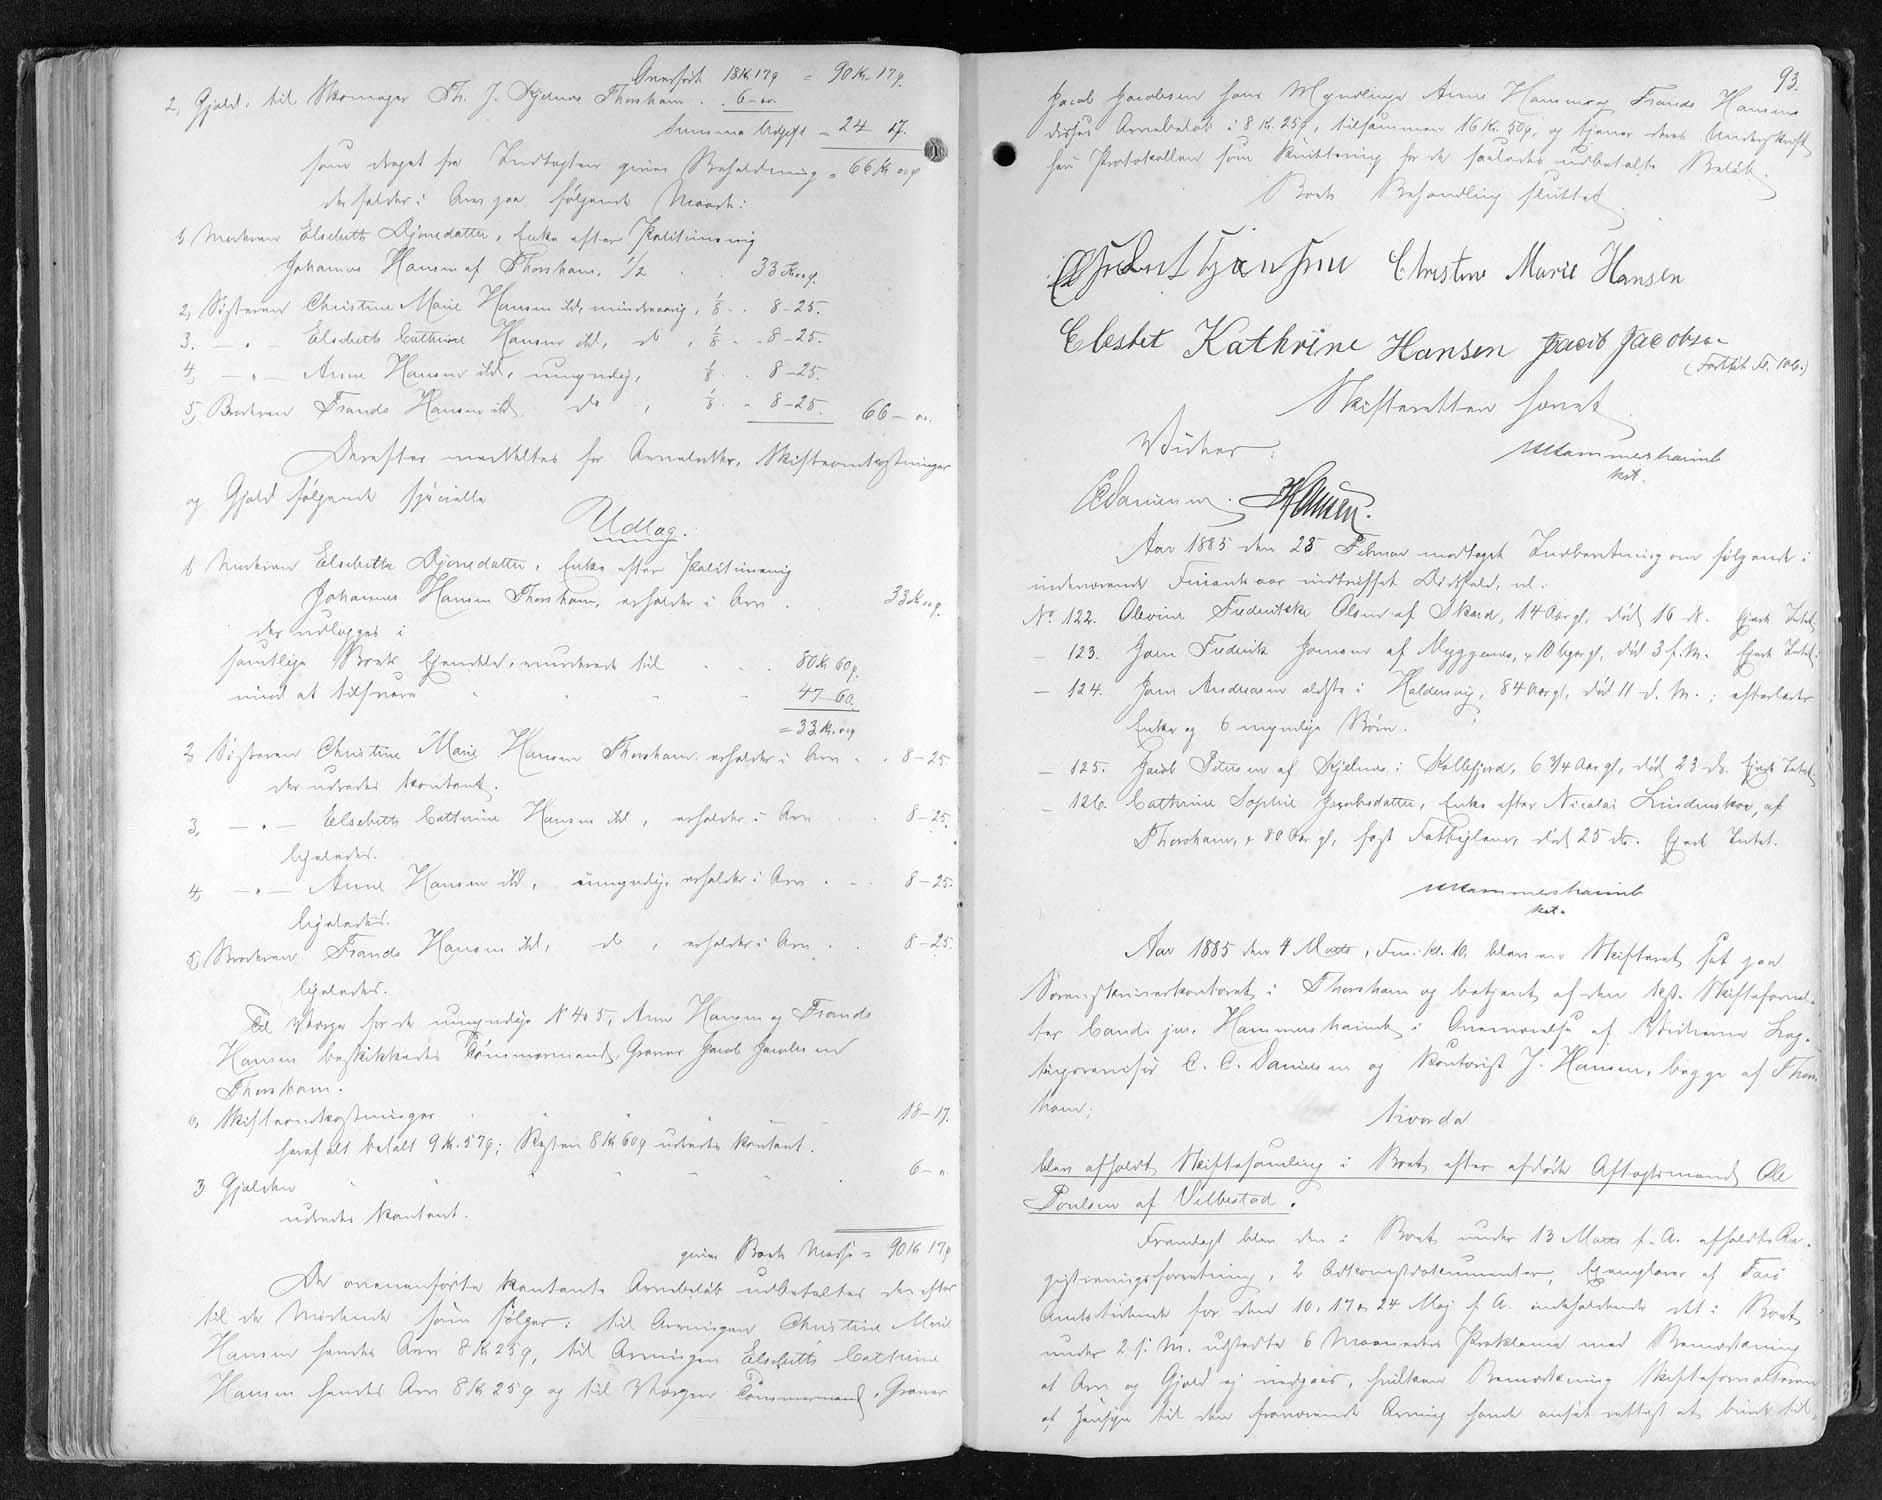 Overført 18 Kr 17 ø = 90 Kr. 17 ø.
2, Gjeld, til Skomager Th. J. Kjelnæs Thorshavn . . 6 - oo.
Summa Udgift = 24 17.
som draget fra Indtægten giver Beholdning = 66 Kr oo ø
der falder i Arv paa følgende Maade:
1, Moderen Elsebeth Djonedatter, Enke efter Politibetjent
Johannes Hansen af Thorshavn, 1/2 . . 33 Kr oo ø.
2, Søsteren Christine Marie Hansen ibd, mindreaarig, 1/8 . . 8 - 25.
3. — „ — Elsebeth Cathrine Hansen ibd, do , 1/8 . . 8 - 25.
4, — „ — Anne Hansen ibd, umyndig, 1/8 . . 8 - 25.
5, Broderen Frands Hansen ibd. do , 1/8 . - 8 - 25. 66 - oo.
Derefter meddeltes for Arvelodder, Skifteomkostninger
og Gjeld følgende specielle
Udlæg.
1, Moderen Elsebeth Djonedatter, Enke efter Politibetjent
Johannes Hansen Thorshavn, erholder i Arv . . 33 Kr oo ø.
der udlægges i
samtlige Boets Ejendele, vurderede til . . . 80 Kr 60 ø.
mod at tilsvare 47 - 60.
= 33 Kr. oo ø
2, Søsteren Christine Marie Hansen Thorshavn erholder i Arv . . 8 - 25
der udredes kontant.
3, — „ — Elsebeth Cathrine Hansen ibd, erholder i Arv . . . 8 - 25.
ligeledes.
4, — „ — Anne Hansen ibd, umyndig, erholder i Arv . - - 8 - 25.
ligeledes.
5, Broderen Frands Hansen ibd, do , erholder i Arv . . 8 - 25.
ligeledes.
Til Værge for de umyndige No 4 og 5, Anne Hansen og Frands
Hansen beskikkedes Tømmermand, Graver Jacob Jacobsen
Thorshavn.
Skifteomkostninger 18 - 17.
heraf alt betalt 9 Kr. 57 ø; Resten 8 Kr 60 ø udredes kontant.
3 Gjælden 6 - oo
udredes kontant.
giver Boets Masse = 90 Kr 17 ø
De ovenanførte kontante Arvebeløb udbetaltes derefter
til de Mødende som følger: til Arvingen Christine Marie
Hansen hendes Arv 8 Kr 25 ø, til Arvingen Elsebeth Cathrine
Hansen hendes Arv 8 Kr 25 ø og til Værgen Tømmermand, Graver
93.
Jacob Jacobsen hans Myndlinge Anne Hansen og Frands Hansens
disses Arvebeløb i 8 Kr. 25 ø, tilsammen 16 Kr. 50 ø, og tjener deres Underskrift
her i Protokollen som Kvittering for de saaledes udbetalte Beløb.
Boets Behandling sluttet.
Christine Marie Hansen
Elesbet Kathrine Hansen Jacob Jacobsen
(Fortsat Fo. 106.)
Skifteretten hævet.
Vidner: HHammershaimb
kst.
CCDanielsen. JHansen.
Aar 1885 den 28 Februar modtaget Indberetning om følgende i
indeværende Finantsaar indtruffet Dødsfald, nl:
No. 122. Olevine Frederikke Olsen af Skaard, 14 Aar gl, død 16 ds. Ejede Intet.
— 123. Joen Frederik Joensen af Myggenæs, 10 Uger gl, død 3 f. M. Ejede Intet.
— 124. Joen Andreasen ældste i Haldersvig, 84 Aar gl, død 11 d. M.; efterlader
Enke og 6 myndige Børn.
— 125. Jacob Petersen af Kjelnæs i Kollefjord, 6 3/4 Aar gl, død 23 ds. Ejede Intet.
— 126. Cathrine Sophie Jacobsdatter, Enke efter Nicolai Lindenskov, af
Thorshavn, 80 Aar gl, sagt Fattiglem, død 25 ds. Ejede Intet.
HHammershaimb
kst.
Aar 1885 den 4 Marts, Fm. Kl. 10, blev en Skifteret sat paa
Sorenskriverkontoret i Thorshavn og betjent af den kst. Skifteforval-
ter Cand. jur. Hammershaimb i Overværelse af Vidnerne Lag-
tingsrevisor C. C. Danielsen og Kontorist J. Hansen, begge af Thors-
havn;
hvorda
blev afholdt Skiftesamling i Boet efter afdøde Aftægtsmand Ole
Poulsen af Velbestad.
Fremlagt blev den i Boet under 13 Marts f. A. afholdte Re-
gistreringsforretning, 2 Adkomstdokumenter, Exemplarer af Færø
Amtstidende for den 10, 17 og 24 Maj f. A. indeholdende det i Boet
under 2 s. M. udstedte 6 Maaneders Proklama med Bemærkning
at Arv og Gjeld ej vedgaaes, hvilken Bemærkning Skifteforvalteren
af Hensyn til den fraværende Arving havde anset rettest at burde til-